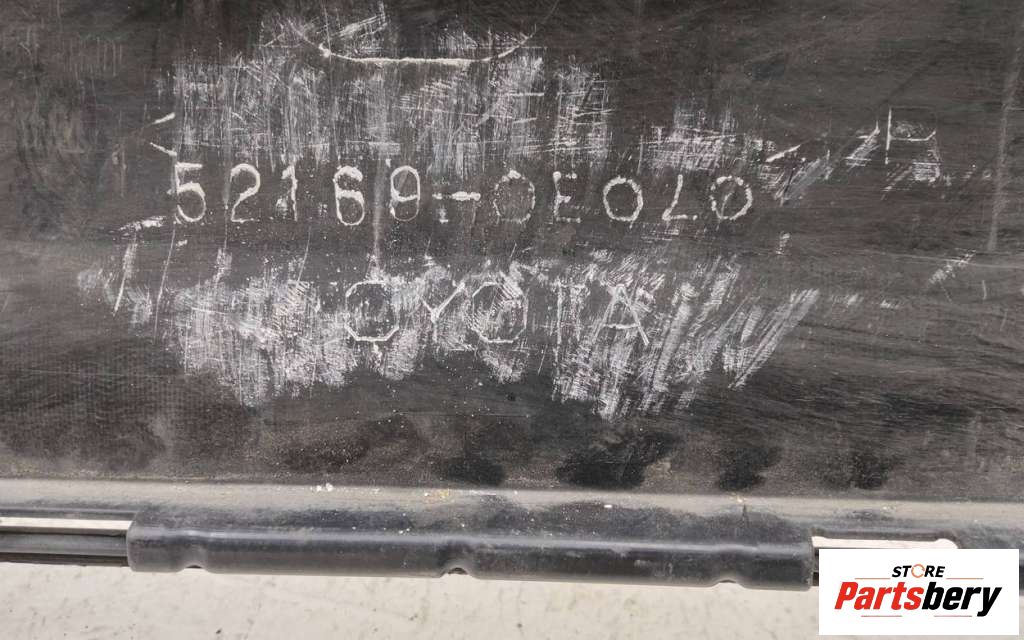 52169-0E070
TOYOTA
STORE
Partsbery